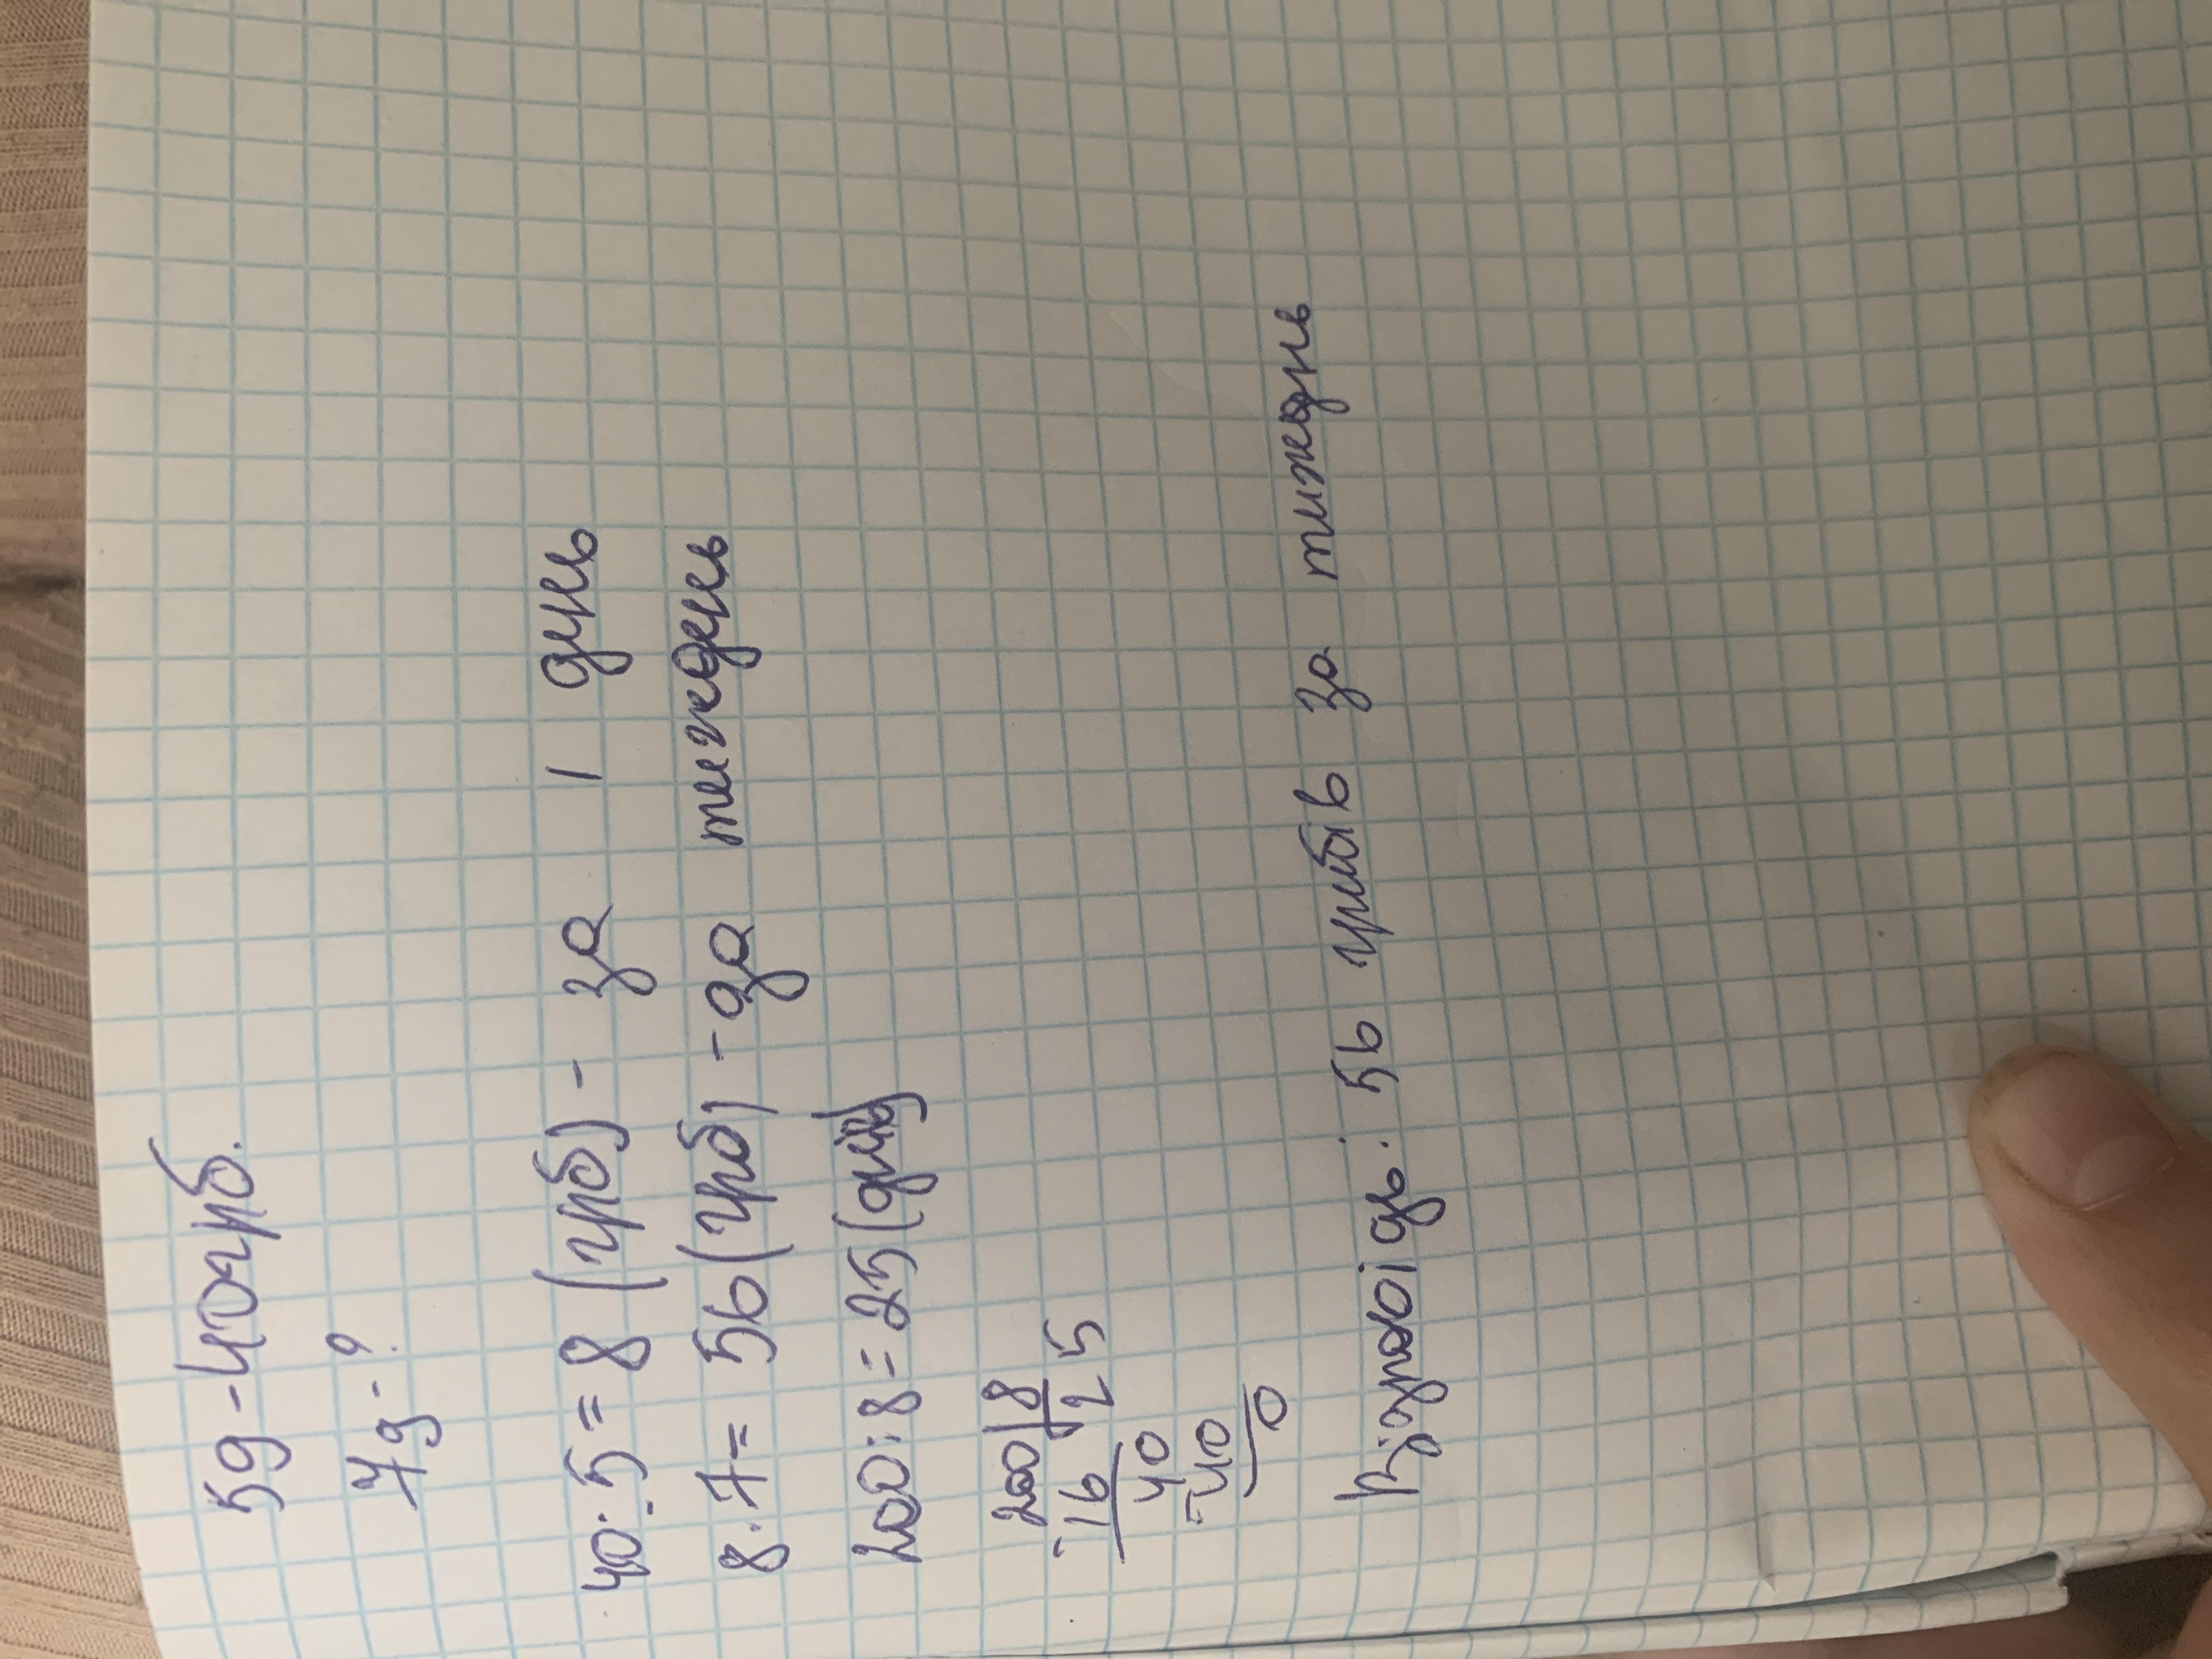 5д - 40гриб.
7д - ?
40:5=8 (гриб) - за 1 день
8·7=56 (гриб) - за тиждень
200:8=25 (днів)
200|8
-16 25
40
-40
0
Відповідь: 56 грибів за тиждень